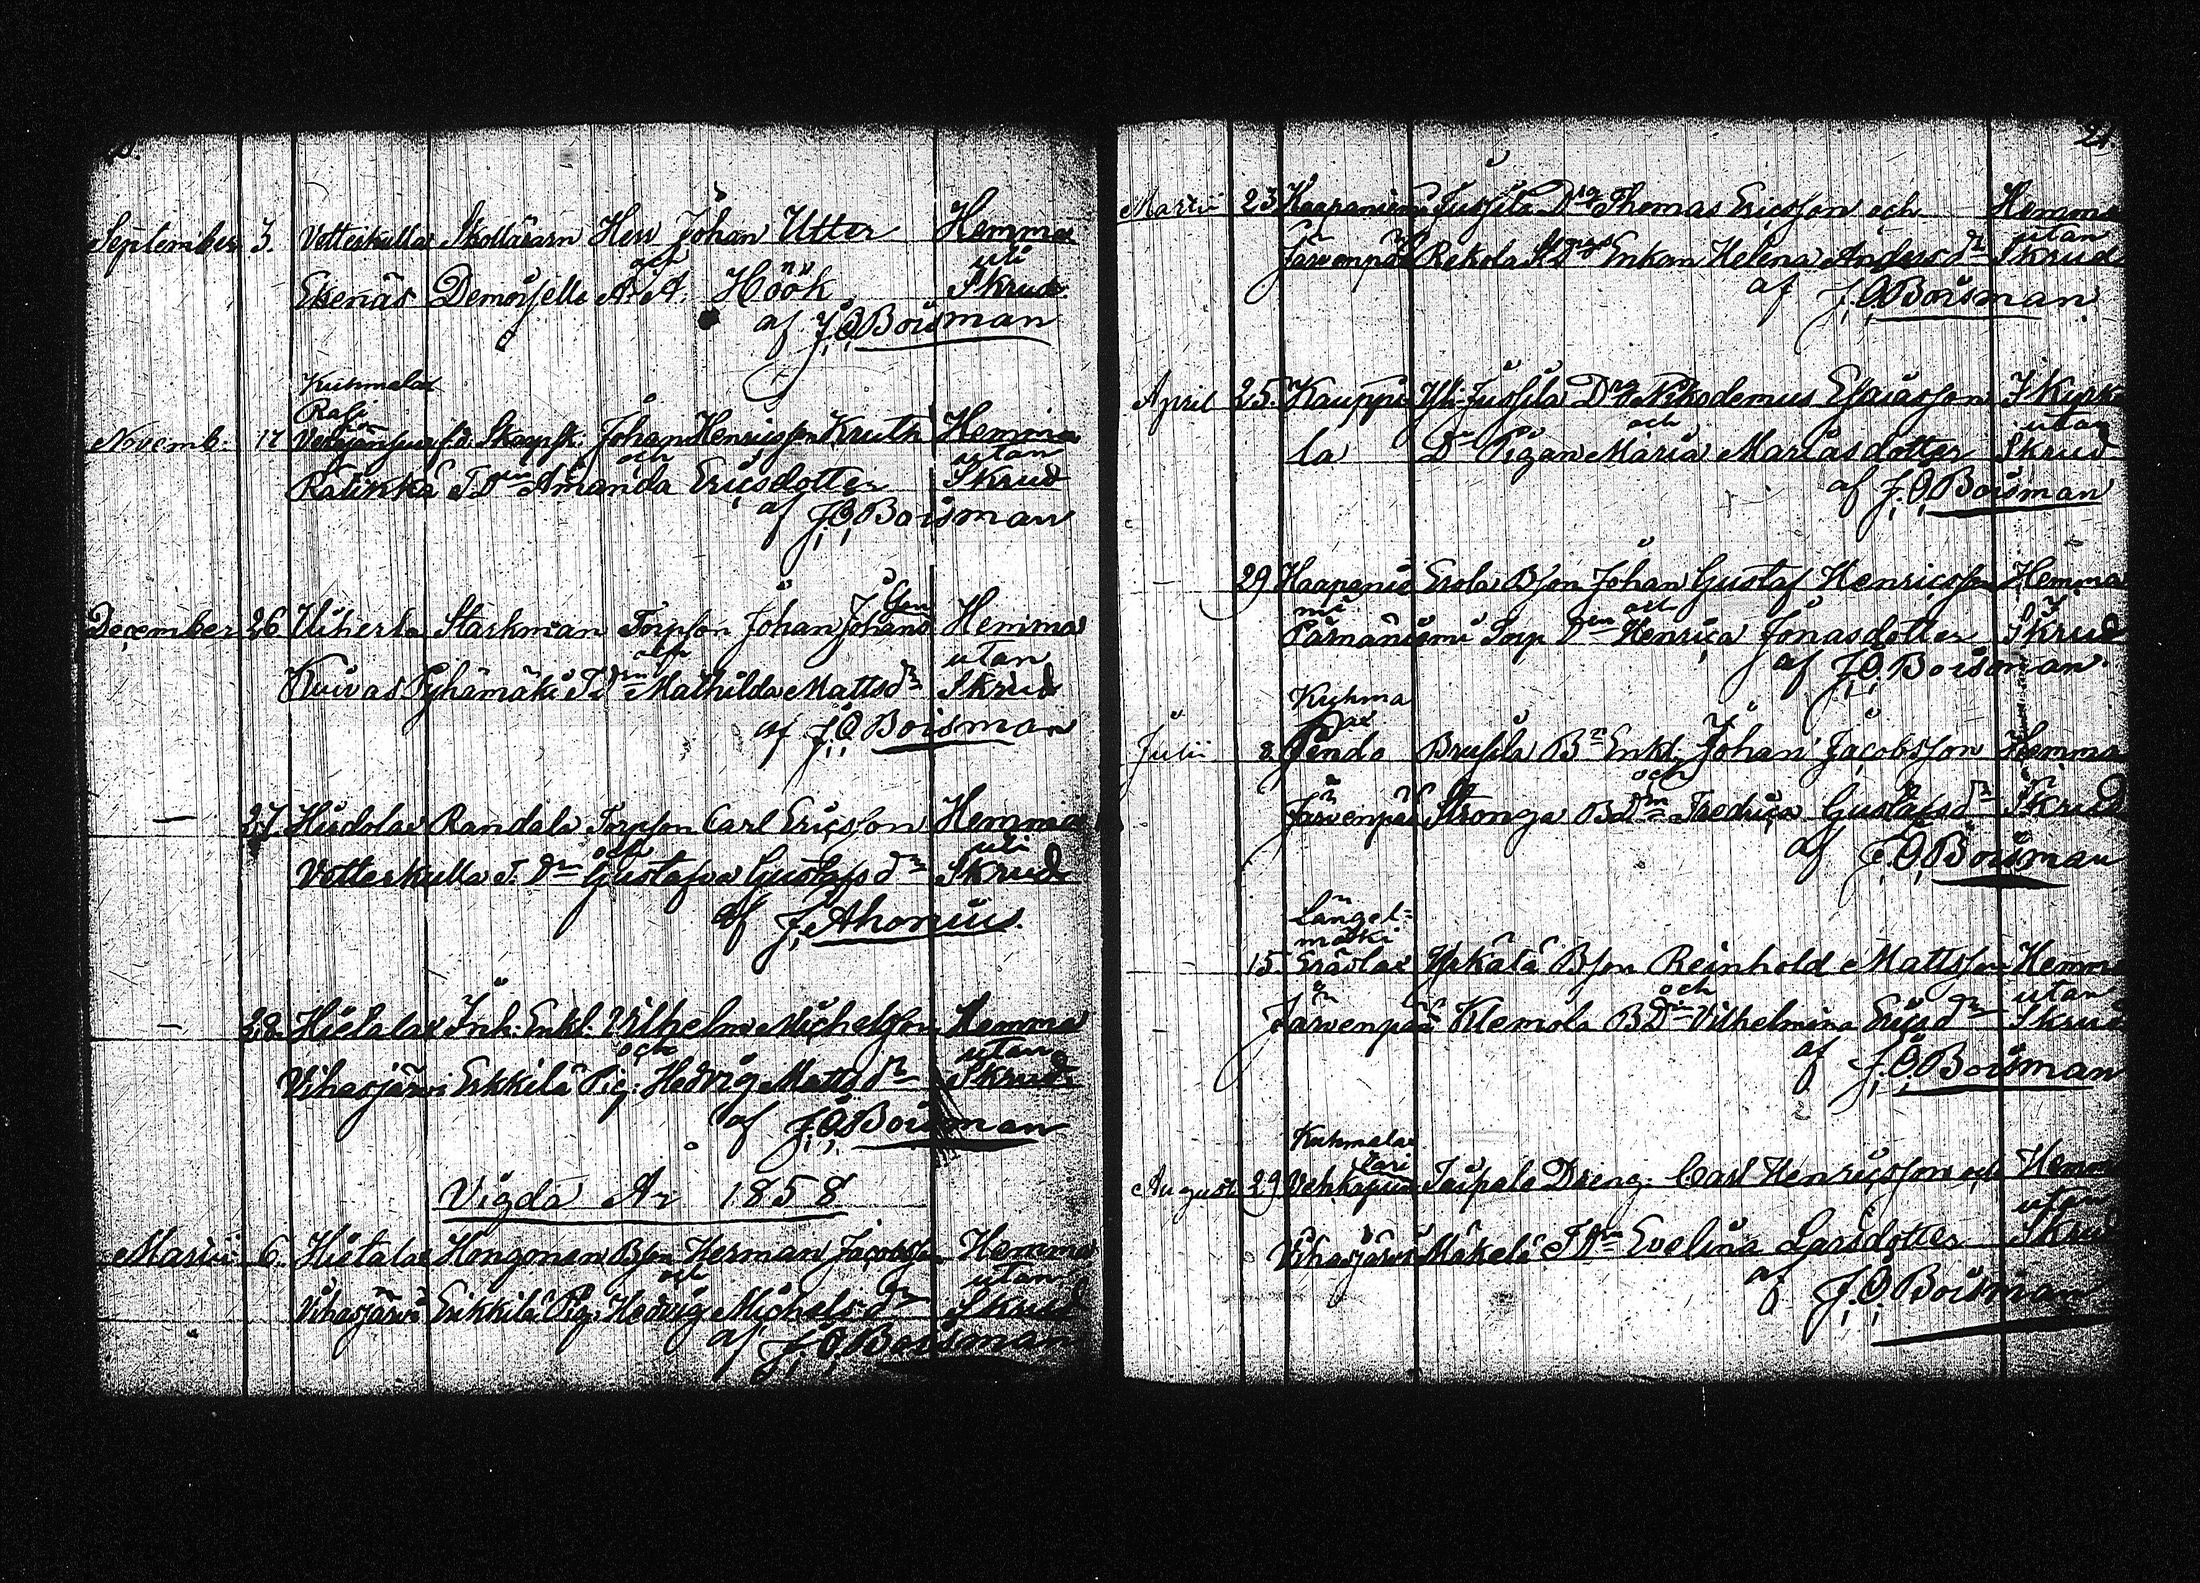 September 3. Votterkulla Skollärarn Herr Johan Utter Hemma
och uti
Ekenäs Demoiselle A. A. Höök Skrud.
af J. O. Boisman
Kuhmalax
Novemb. Johan Henricsson Kruth Hemma
och utan
Amanda Ericsdotter Skrud
af J. O. Boisman
December 26 Uiherla Starkman Torpson Johan Johans Hemma
och utan
Kuivas Pyhämäki T. Dren Mathilda Mattsdr Skrud
af J. O. Boisman
— 27 Huidolax Randala Torpson Carl Ericsson Hemma
och uti
Votterkulla T. Dn Gustafva Gustafsdr Skrud
af J. Ahonius.
— 28. Hietalax Inh. Enkl. Vilhelm Michelsson Hemma
och utan
Vihasjärvi Erkkilä Pig. Hedvig Mattsdr Skrud.
af J. O. Boisman
Vigda År 1858
Martii 6. Hietalax Hongonen Bson Herman Jacobsson Hemma
och utan
Vihasjärvi Erikkilä Pig. Hedvig Michelsdr Skrud
af J. O. Boisman
21.
Martii 23 Haapaniemi Jussila Drg Thomas Ericsson och Hemma
utan
Järvenpää Rekola Enkan Helena Andersdr Skrud
af J. O. Boisman
April 25. Kauppi Yli-Jussila Drg Nikodemus Esaiasson I Kyrk
och utan
la Do Pigan Maria Mariasdotter Skrud
af J. O. Boisman
— 29 Haapanie Erola Bson Johan Gustaf Henricsson Hemma
mi och i
Pärnäniemi Inp Dren Henrica Jonasdotter Skrud
af J. O. Boisman.
Kuhma
lax
Julii 8 Pendo Brusila Bn Enkl. Johan Jacobsson Hemma
och i
Järvenpää Stronga BDrn Fredrica Gustafsdr Skrud
af J. O. Boisman
Längel=
mäki
— 15 Eräslax Bson Reinhold Mattsson Hemma
och utan
Järvenpää Klemola BDrn Vilhelmina Ericsdr Skrud
af J. O. Boisman
Kuhmalax
August 29 Vehkapuu Taipale Dreng. Carl Henricsson och Hemma
utan
Vihasjärvi Mäkelä T Drn Evelina Larsdotter Skrud
af J. O. Boisman